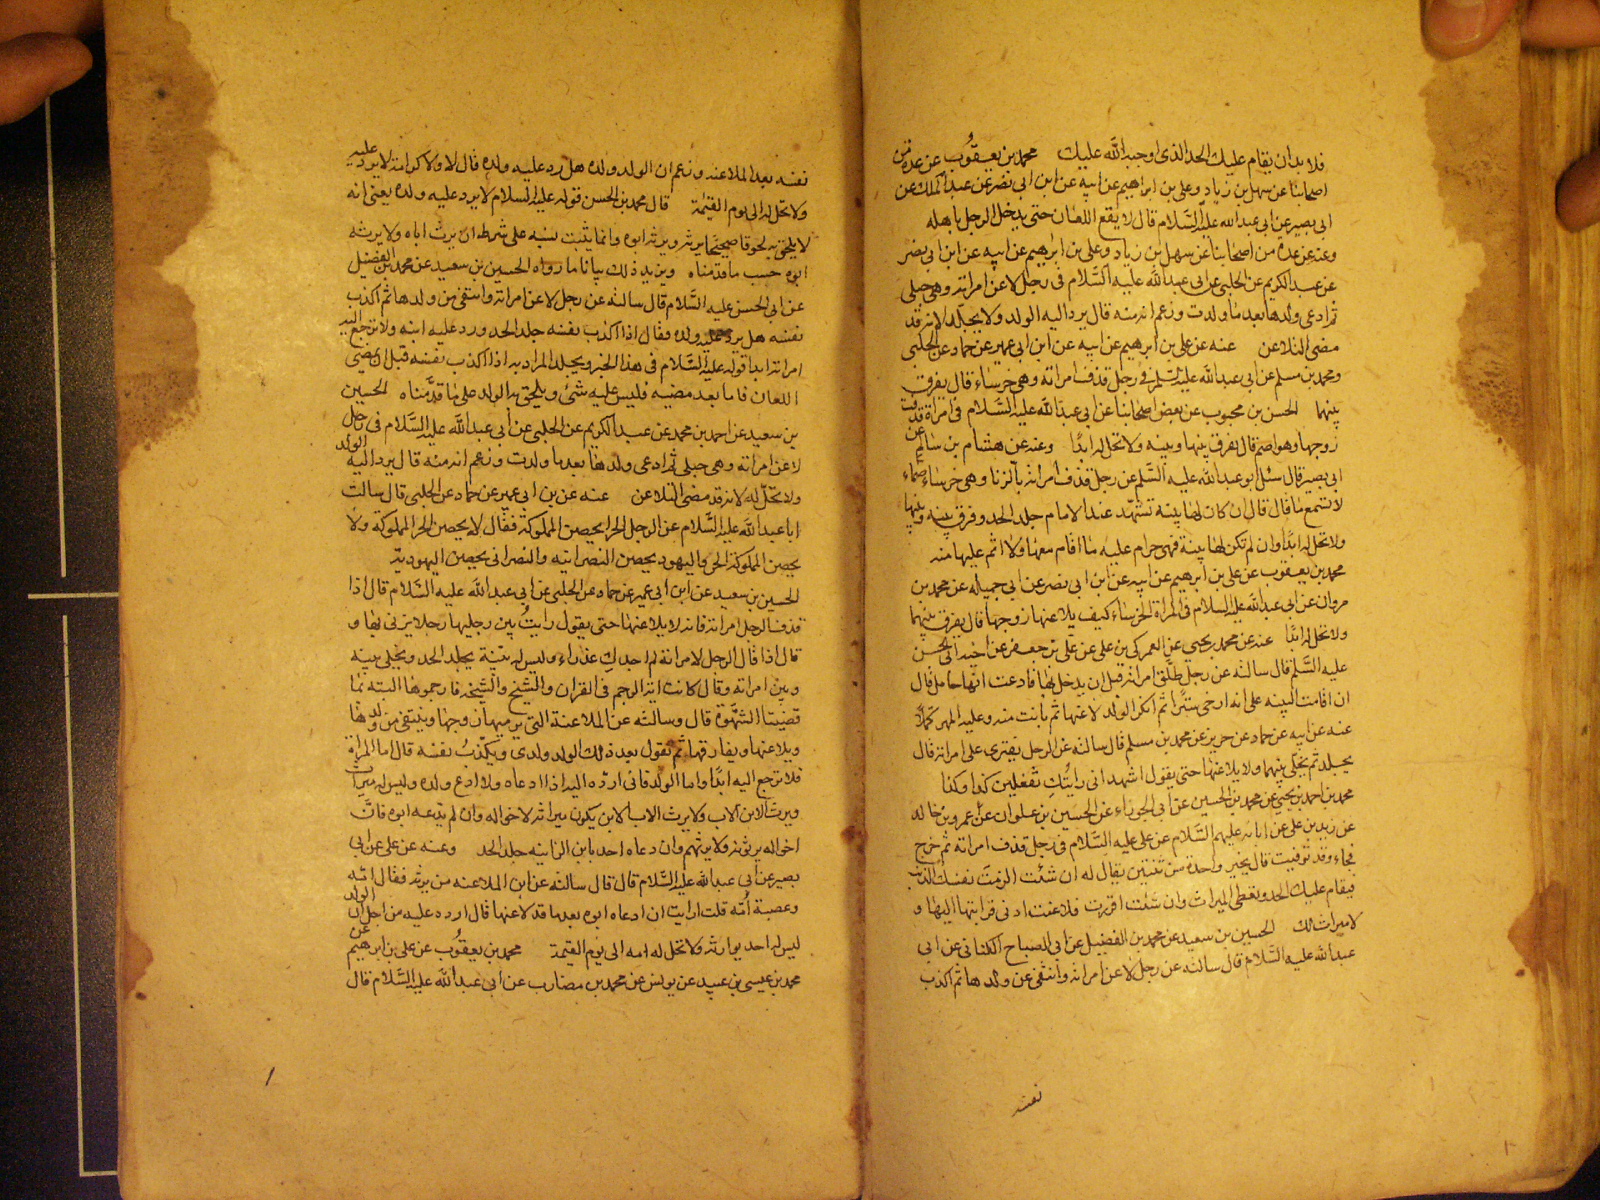 فلا بد ان يقام عليك الحد الذى اوجبه الله عليك محمد بن يعقوب عن عدة من
اصحابنا عن سهل بن زياد وعلى بن ابراهيم عن ابيه عن ابن ابى نصر عن عبد الملك عن
ابى بصير عن ابى عبد الله عليه السلام قال لا يقع اللعان حتى يدخل الرجل باهله
وعنه عن عدة من اصحابنا عن سهل بن زياد وعلى بن ابرهيم عن ابيه عن ابن ابى نصر
عن عبد الكريم عن الحلبى عن ابى عبد الله عليه السلام فى رجل لاعن امراته وهى حبلى
ثم ادعى ولدها بعد ما ولدت وزعم انه منه قال يرد اليه الولد ولا يجلد لانه قد
مضى التلاعن عنه عن على بن ابرهيم عن ابيه عن ابن ابى عمير عن حماد عن الحلبى
ومحمد بن مسلم عن ابى عبد الله عليه السلم فى رجل قذف امراته وهى خرساء قال يفرق
بينها الحسن بن محبوب عن بعض اصحابنا عن ابى عبد الله عليه السلام فى امراة قذفت
زوجها وهو اصم قال يفرق بينها وبينه ولا تحل له ابدا وعنه عن هشام بن سالم عن
ابى بصير قال سئل ابو عبد الله عليه السلم عن رجل قذف امراته بالزنا وهى خرساء صماء
لا تسمع ما قال قال ان كان لها بينة تشهد عند الامام جلد الحد وفرق بينه وبينها
ولا تحل له ابدا وان لم تكن لها بينة فهى حرام عليه ما اقام معها ولا اثم عليها منه
محمد بن يعقوب عن على بن ابرهيم عن ابيه عن ابن ابى نصر عن ابى جميله عن محمد بن
مروان عن ابى عبد الله عليه السلام فى المراة الخرساء كيف يلاعنها زوجها قال يفرق بينهما
ولا تحل له ابدا عنه عن محمد بن يحيى عن العمركى بن على عن على بن جعفر عن اخيه ابى الحسن
عليه السلم قال سالته عن رجل طلق امراته قبل ان يدخل بها فادعت انها حامل قال
ان اقامت البينه على انه ارخى سترا ثم انكر الولد لاعنها ثم بانت منه وعليه المهر كملا
عنه عن ابيه عن حماد عن حريز عن محمد بن مسلم قال سالته عن الرجل يفترى على امراته قال
يجلد ثم يخلى بينهما ولا يلاعنها حتى يقول اشهد انى رايتك تفعلين كذا وكذا
محمد بن احمد بن يحيى عن محمد بن الحسين عن ابى الجوزاء عن الحسين بن علوان عن عمرو بن خالد
عن زيد بن على عن ابائه عليهم السلام عن على عليه السلام فى رجل قذف امراته ثم خرج
فجاء وقد توفيت قال يخير واحدة من ثنتين يقال له ان شئت الزمت نفسك الذنب
فيقام عليك الحد وتعطى الميراث وان شئت اقررت فلاعنت ادنى قرابتها اليها و
لا ميراث لك الحسين بن سعيد عن محمد بن الفضيل عن ابى الصباح الكنانى عن ابى
عبد الله عليه السلام قال سالته عن رجل لاعن امراته وانتفى عن ولدها ثم اكذب
نفسه
نفسه بعد الملاعنه وزعم ان الولد ولده هل يرد عليه ولده قال لا ولا كرامة لا يرد عليه
ولا تحل له الى يوم القيمة قال محمد بن الحسن قوله عليه السلام لا يرد عليه ولده يعنى انه
لا يلحق به لحوقا صحيحا يرثه ويرثه ابوه وانما يثبت نسبه على شرط ان يرث اباه ولا يرثه
ابوه حسب ما قدمناه ويزيد ذلك بيانا ما رواه الحسين بن سعيد عن محمد بن الفضيل
عن ابى الحسن عليه السلام قال سالته عن رجل لاعن امراته وانتفى من ولدها ثم اكذب
نفسه هل يرد عليه ولده فقال اذا اكذب نفسه جلد الحد ورد عليه ابنه ولا ترجع اليه
امراته ابدا قوله عليه السلام فى هذا الخبر ويجلد المراد به اذا اكذب نفسه قبل ان يمضى
اللعان فاما بعد مضيه فليس عليه شئ ويلحق به الولد على ما قدمناه الحسين
بن سعيد عن احمد بن محمد عن عبد الكريم عن الحلبى عن ابى عبد الله عليه السلام فى رجل
لاعن امراته وهى حبلى ثم ادعى ولدها بعد ما ولدت وزعم انه منه قال يرد اليه الولد
ولا تحل له لانه قد مضى التلاعن عنه عن بن ابى عمير عن حماد عن الحلبى قال سالت
ابا عبد الله عليه السلام عن الرجل الحر ايحصن المملوكة فقال لا يحصن الحر المملوكة ولا
يحصن المملوكة الحر واليهود يحصن النصرانيه والنصرانى يحصن اليهودية
الحسين بن سعيد عن ابن ابى عمير عن حماد عن الحلبى عن ابى عبد الله عليه السلام قال اذا
قذف الرجل امراته فانه لا يلاعنها حتى يقول رايت بين رجليها رجلا يزنى بها و
قال اذا قال الرجل لامراته لم اجدك عذراء وليس له بينة يجلد الحد ويخلى بينه
وبين امراته وقال كانت اية الرجم فى القران والشيخ والشيخة فارجموها البته بما
قضيتا الشهوة قال وسالته عن الملاعنة التى يرميها زوجها وينتفى من ولدها
ويلاعنها ويفارقها ثم يقول بعد ذلك الولد ولدى ويكذب نفسه قال اما المراة
فلا ترجع اليه ابدا واما الولد فانى ارده اليه اذا ادعاه ولا ادع ولده وليس له ميراث
ويرث الابن الاب ولا يرث الاب الابن يكون ميراثه لاخواله وان لم يدعه ابوه فان
اخواله يرثونه ولا يرثهم وان دعاه احد بابن الزانيه جلد الحد وعنه عن على عن ابى
بصير عن ابى عبد الله عليه السلام قال قال سالته عن ابن الملاعنه من يرثه فقال امه
وعصبة امه قلت ارايت ان ادعاه ابوه بعد ما قد لاعنها قال ارده عليه من اجل ان الولد
ليس له احد يوارثه ولا تحل له امه الى يوم القيمة محمد بن يعقوب عن على بن ابرهيم عن
محمد بن عيسى بن عبيد عن يونس عن محمد بن مضارب عن ابى عبد الله عليه السلام قال